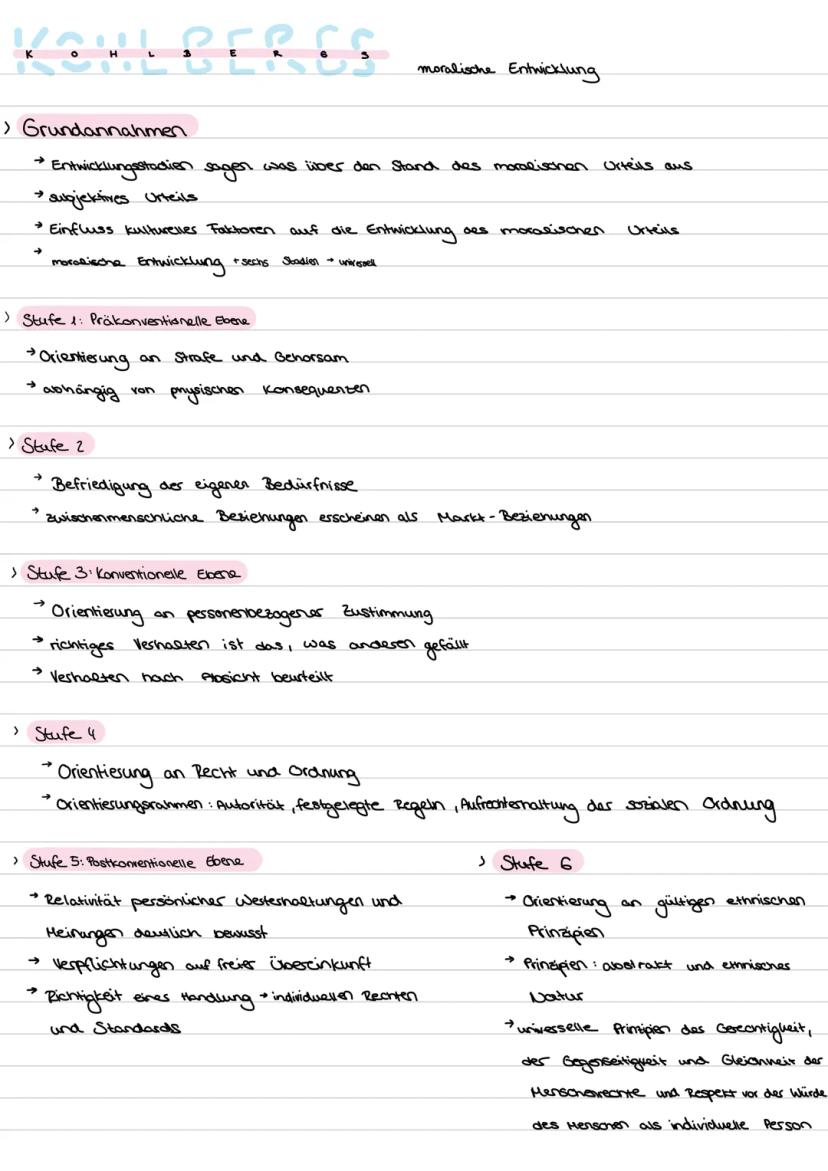 KOHLBERGS
moralische Entwicklung
> Grundannahmen
→ Entwicklungsstadien sagen was über den Stand des moralischen Urteils aus
→ subjektives Urteils
→ Einfluss kultureller Faktoren auf die Entwicklung des moralischen Urteils
→ moralische Entwicklung → sechs Stadien → universell
> Stufe 1: Präkonventionelle Ebene
→ Orientierung an Strafe und Gehorsam
→ abhängig von physischen Konsequenzen
> Stufe 2
→ Befriedigung der eigenen Bedürfnisse
→ zwischenmenschliche Beziehungen erscheinen als Markt-Beziehungen
> Stufe 3: Konventionelle Ebene
→ Orientierung an personenbezogener Zustimmung
→ richtiges Verhalten ist das, was anderen gefällt
→ Verhalten nach Absicht beurteilt
> Stufe 4
→ Orientierung an Recht und Ordnung
→ Orientierungsrahmen: Autorität, festgelegte Regeln, Aufrechterhaltung der sozialen Ordnung
> Stufe 5: Postkonventionelle Ebene
→ Relativität persönlicher Werteshaltungen und
Meinungen deutlich bewusst
→ Verpflichtungen auf freier Übereinkunft
→ Richtigkeit eines Handlung → individuellen Rechten
und Standards
> Stufe 6
→ Orientierung an gültigen ethnischen
Prinzipien
→ Prinzipien: abstrakt und ethnisches
Natur
→ universelle Prinzipien des Gerechtigkeit,
der Gegenseitigkeit und Gleichheit der
Menschenrechte und Respekt vor der Würde
des Menschen als individuelle Person